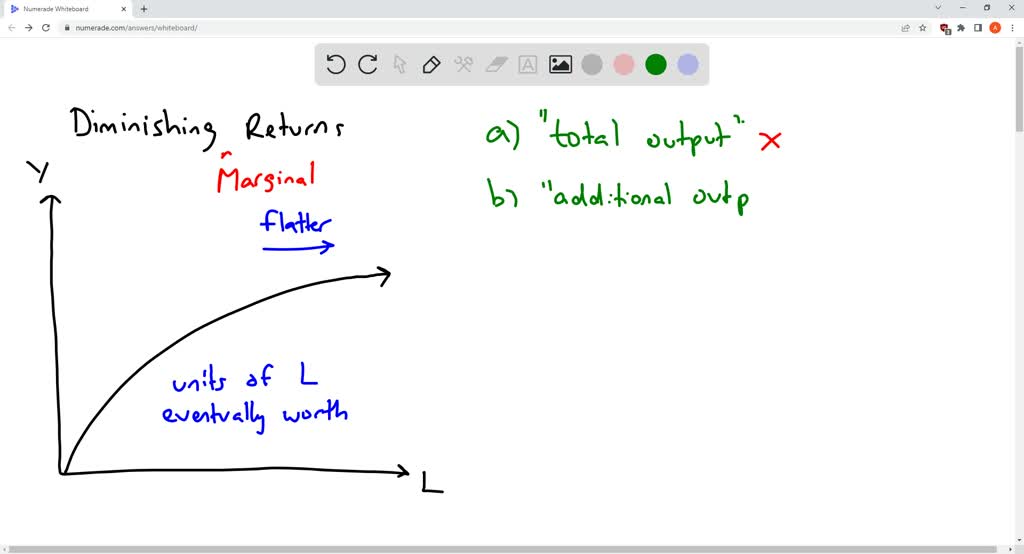 Numerade Whiteboard
numerade.com/answers/whiteboard/
A
A
Diminishing Returns
^
Marginal
Y
flatter
units of L
eventually worth
L
a) "total output". X
b) "additional outp